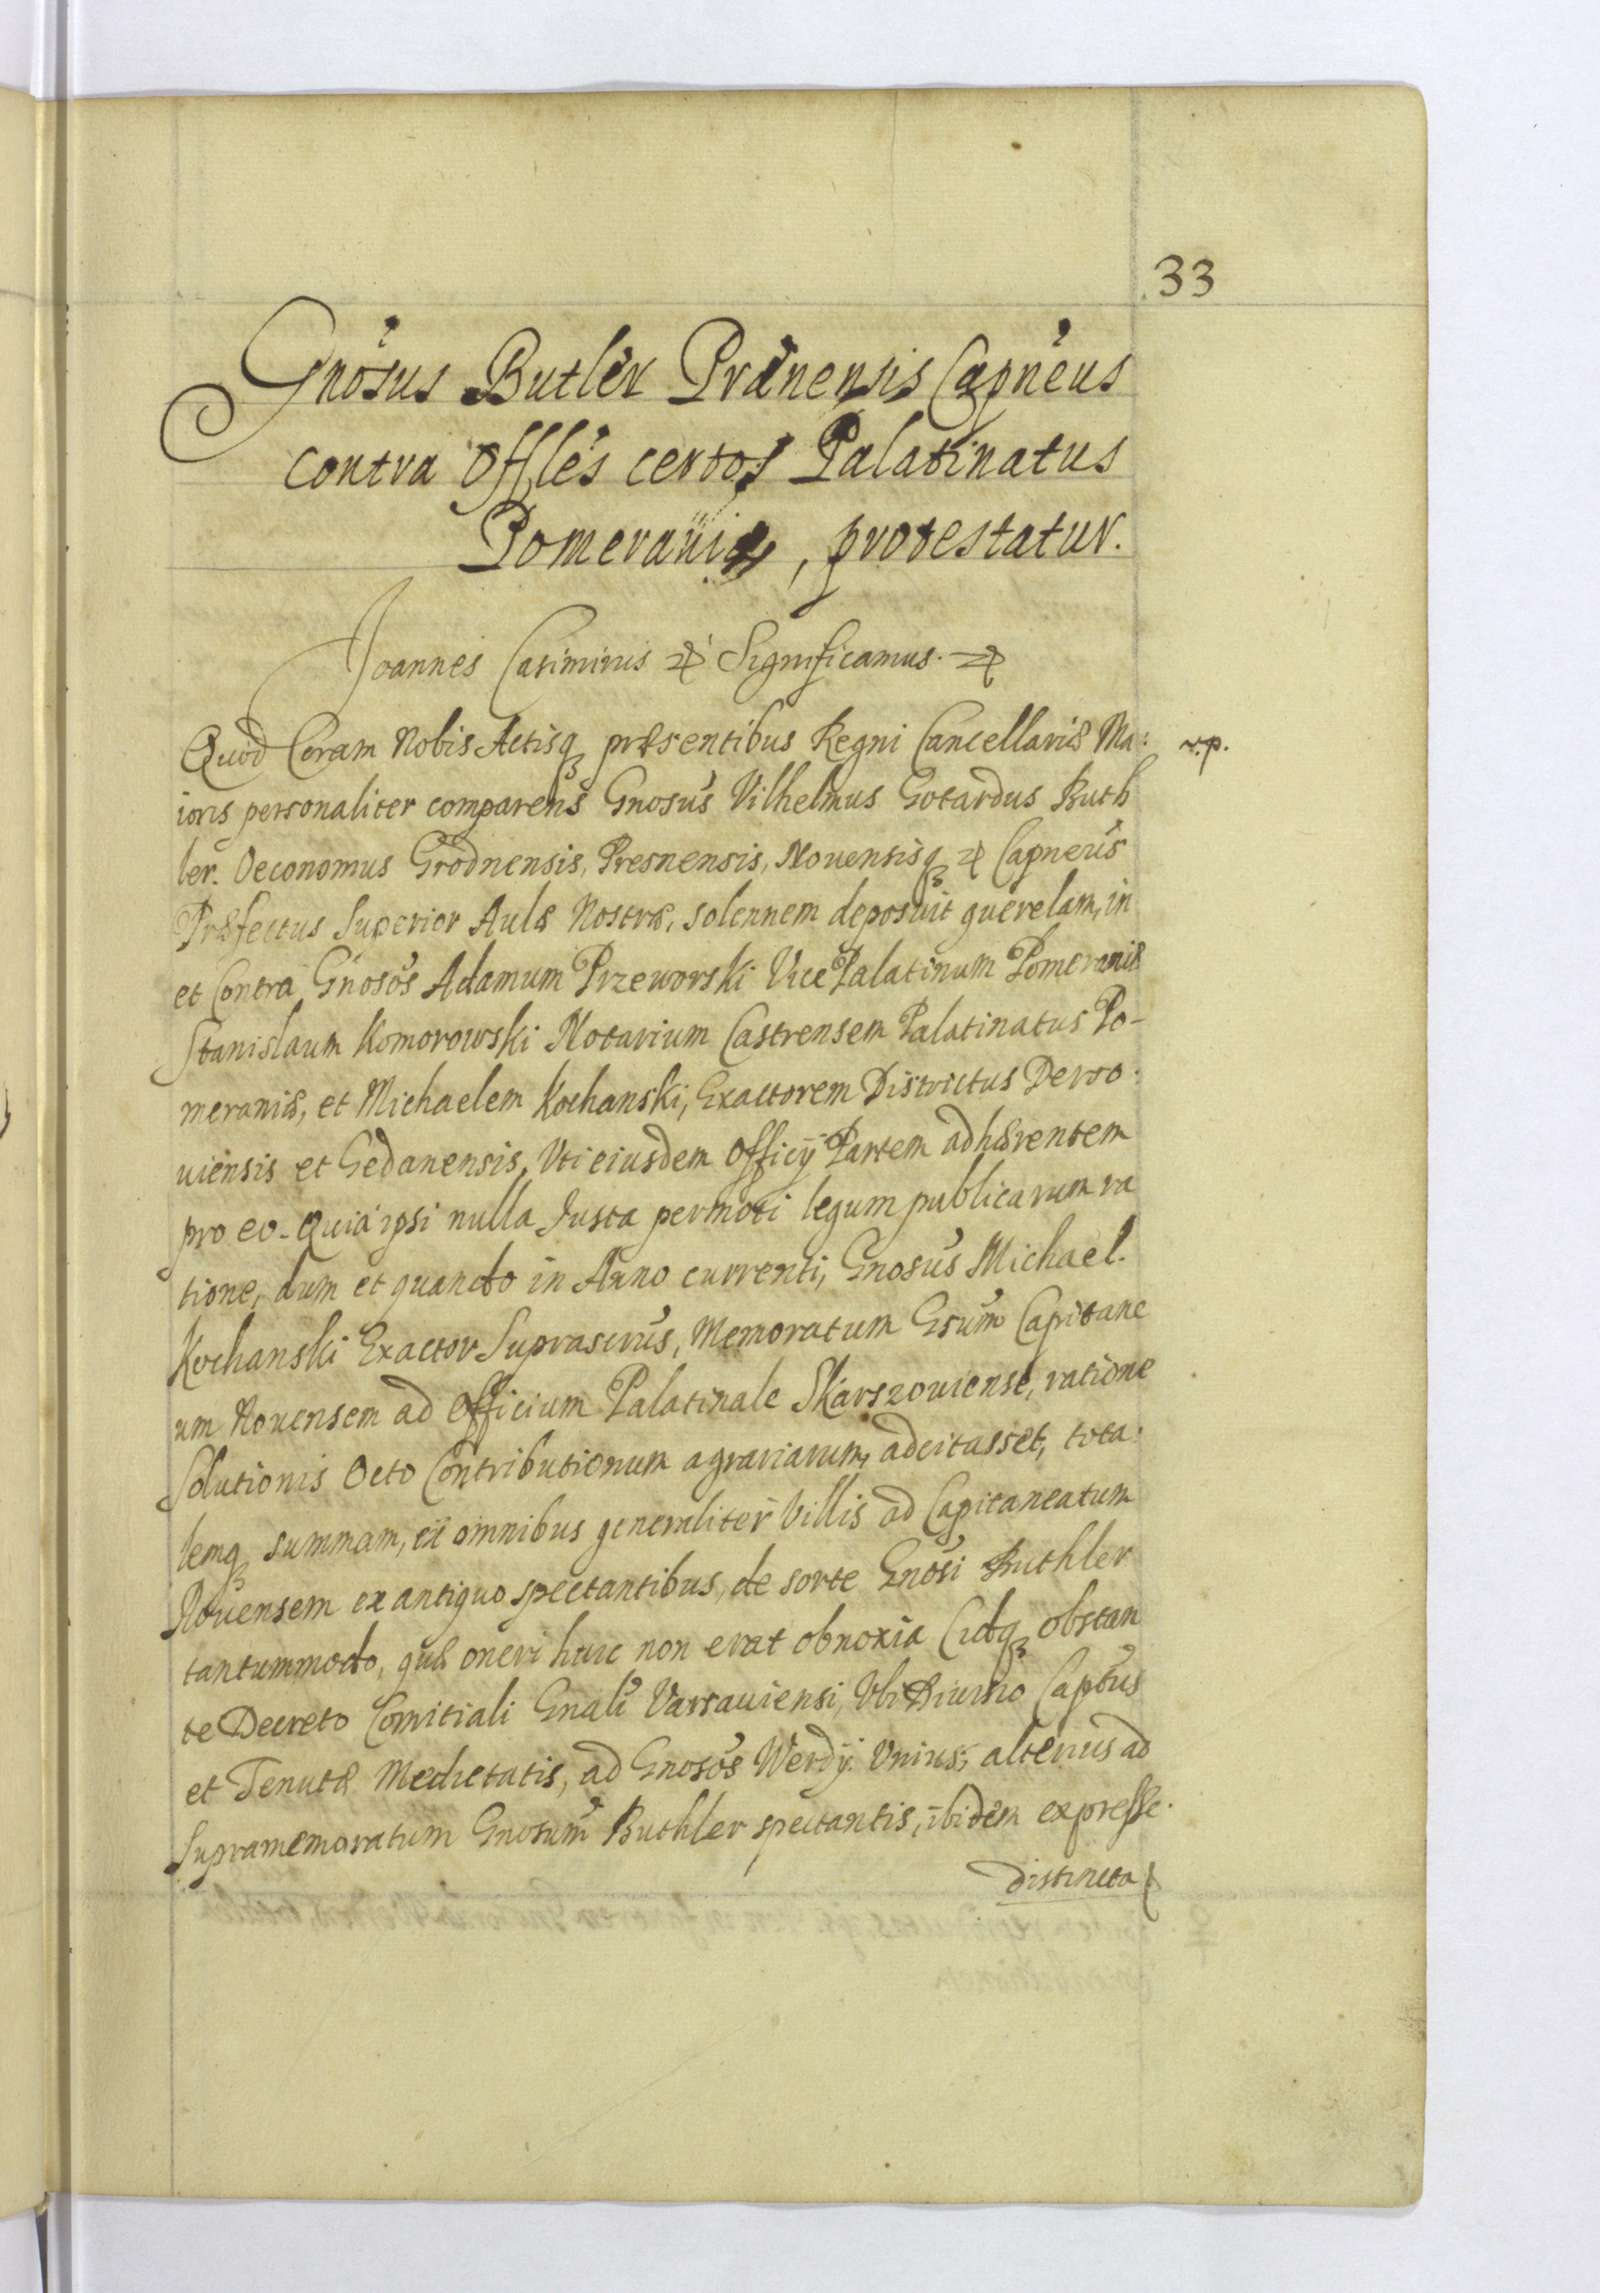 33
Gnosus Butler Prenensis Capneus
contra Offles certos Palatinatus
Pomeraniæ, protestatur.
Joannes Casimirus & Significamus. &
Quod Coram Nobis Actisq præsentibus Regni Cancellariæ Ma:
r.p.
ioris personaliter comparens Gnosus Vilhelmus Gotardus Buth
ler. Oeconomus Grodnensis, Presnensis, Nouensisq & Capneus
Præfectus Superior Aulæ Nostræ, solennem deposuit querelam, in
et Contra Gnosos Adamum Przeworski Vice Palatinum Pomeraniæ
Stanislaum Komorowski Notarium Castrensem Palatinatus Po-
meraniæ, et Michaelem Kochanski, Exactorem Districtus Derso:
uiensis et Gedanensis, Uti eiusdem Officij Partem adhærentem
pro eo. Quia ipsi nulla Justa permoti legum publicarum ra
tione, dum et quando in Anno currenti, Gnosus Michael.
Kochanski Exactor Suprascrus, Memoratum Gsum Capitane
um Nouensem ad Officium Palatinale Skarszouiense, ratione
Solutionis Octo Contributionum agrariarum, adcitasset, tota:
lemq summam, ex omnibus generaliter Villis ad Capitaneatum
Nouensem ex antiquo spectantibus, de sorte Gnosi Buthler
tantummodo, quæ oneri huic non erat obnoxia Cidq obstan
te Decreto Comitiali Gnali Varsauiensi, Ubi Captus
et Tenutæ Medietatis, ad Gnosos Werdÿ. Unius, alterius ad
Supramemoratum Gnosum Buthler spectantis, ibidem expresse.
distincta